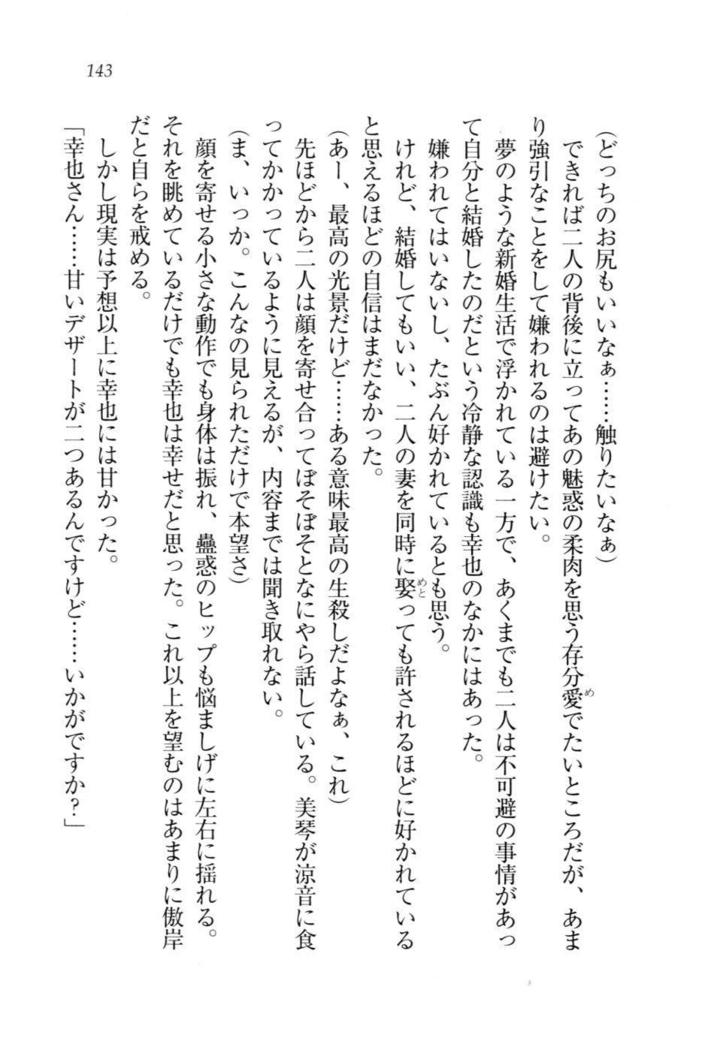 143
(どっちのお尻もいいなぁ……触りたいなぁ)
できれば二人の背後に立ってあの魅惑の柔肉を思う存分愛でたいところだが、あま
り強引なことをして嫌われるのは避けたい。
夢のような新婚生活で浮かれている一方で、あくまでも二人は不可避の事情があっ
て自分と結婚したのだという冷静な認識も幸也のなかにはあった。
嫌われてはいないし、たぶん好かれているとも思う。
けれど、結婚してもいい、二人の妻を同時に娶っても許されるほどに好かれている
と思えるほどの自信はまだなかった。
(あー、最高の光景だけど……ある意味最高の生殺しだよなぁ、これ)
先ほどから二人は顔を寄せ合ってぼそぼそとなにやら話している。美琴が涼音に食
ってかかっているように見えるが、内容までは聞き取れない。
(ま、いっか。こんなの見られただけで本望さ)
顔を寄せる小さな動作でも身体は振れ、蠱惑のヒップも悩ましげに左右に揺れる。
それを眺めているだけでも幸也は幸せだと思った。これ以上を望むのはあまりに傲岸
だと自らを戒める。
しかし現実は予想以上に幸也には甘かった。
「幸也さん……甘いデザートが二つあるんですけど……いかがですか?」
め
めと